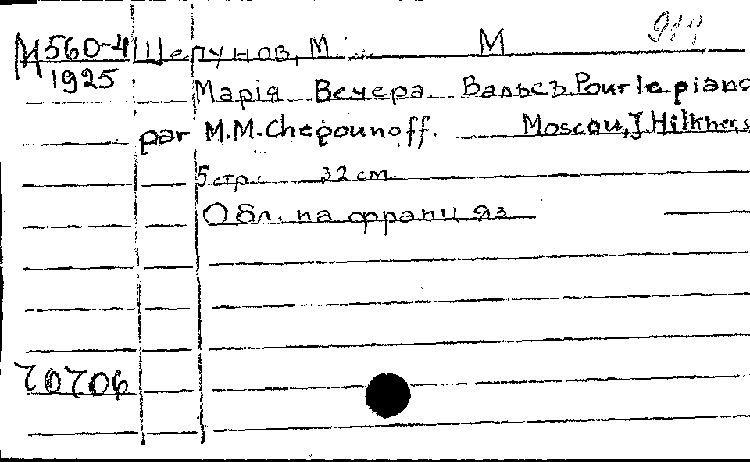 М560-4 Шепунов, М. М
1925
Марiя Вечера. Вальсъ. Pour le piano
par M.M. Chepounoff. Moscou, J. Hilkners
5 стр. 32 см.
Обл. на франц. яз.
70706